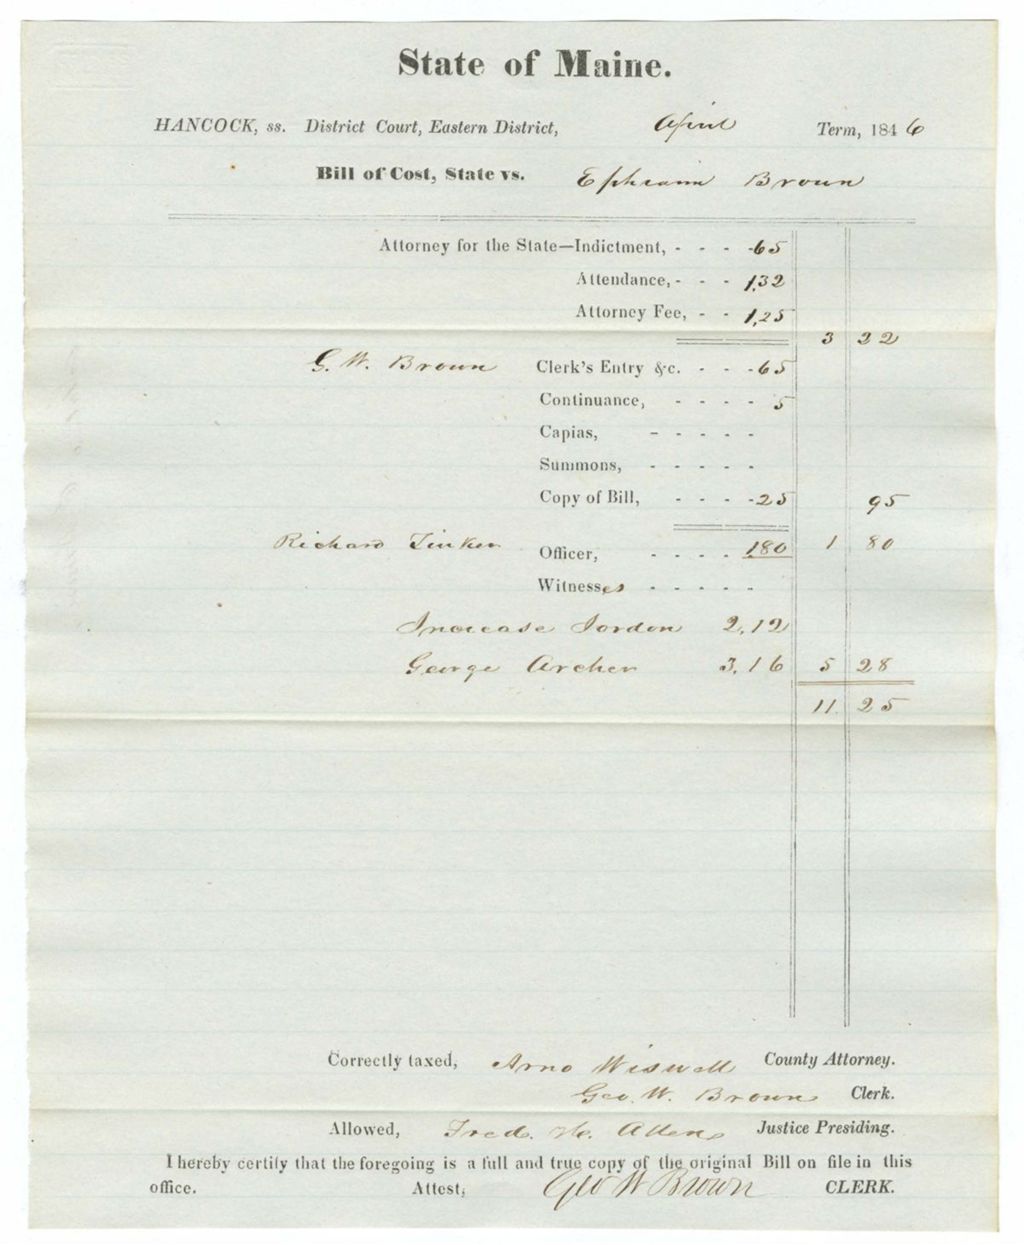 State of Maine.
HANCOCK, ss. District Court, Eastern District, April Term, 1846
Bill of Cost, State vs. Ephraim Brown
Attorney for the State—Indictment, - - - -65
Attendance, - - - 1,32
Attorney Fee, - - 1,25
3 22
G. W. Brown Clerk's Entry &c. - - -65
Continuance, - - - - 5
Capias, - - - - -
Summons, - - - - -
Copy of Bill, - - - -25 95
Richard Tinker Officer, - - - - 180 1 80
Witnesses - - - - -
Increase Jordon 2,12
George Archer 3,16 5 28
11. 25
Correctly taxed, Arno Wiswell County Attorney.
Geo. W. Brown Clerk.
Allowed, Fred. H. Allen Justice Presiding.
I hereby certify that the foregoing is a full and true copy of the original Bill on file in this
office. Attest, Geo W Brown CLERK.